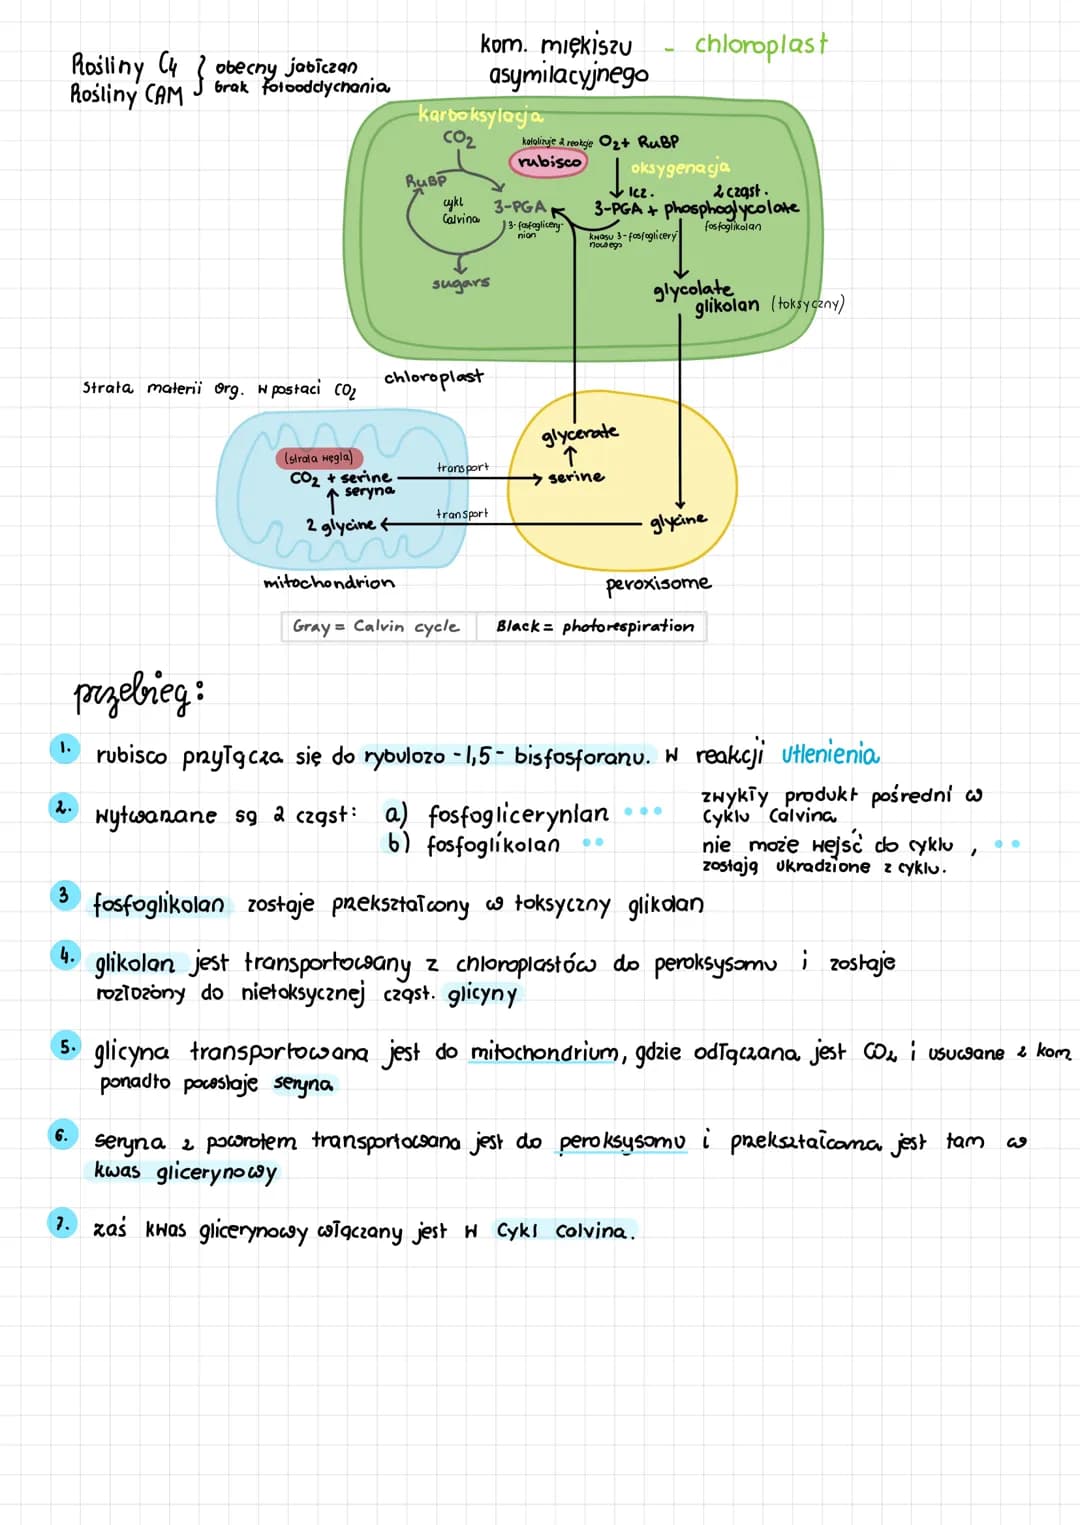 kom. miękiszu - chloroplast
asymilacyjnego
Rośliny C4 } obecny jabłczan
Rośliny CAM brak fotooddychania
karboksylacja
CO2
katalizuje 2 reakcje O2+ RuBP
rubisco
oksygenacja
RuBP
1cz. 2 cząst.
cykl 3-PGA 3-PGA + phosphoglycolate
Calvina 3-fosfoglicery- fosfoglikolan
nion kwasu 3-fosfoglicery
nowego
sugars
glycolate
glikolan (toksyczny)
chloroplast
Strata materii org. w postaci CO2
glycerate
(strata węgla)
transport
CO2 + serine serine
seryna
transport
2 glycine glycine
mitochondrion peroxisome
Gray = Calvin cycle Black = photorespiration
przebieg:
1. rubisco przyłącza się do rybulozo -1,5- bisfosforanu. w reakcji utlenienia
2. wytwarzane są 2 cząst: a) fosfoglicerynian ••• zwykły produkt pośredni w
cyklu Calvina
b) fosfoglikolan •• nie może wejść do cyklu , ••
zostają ukradzione z cyklu.
3 fosfoglikolan zostaje przekształcony w toksyczny glikolan
4. glikolan jest transportowany z chloroplastów do peroksysomu i zostaje
rozłożony do nietoksycznej cząst. glicyny
5. glicyna transportowana jest do mitochondrium, gdzie odłączana jest CO2 i usuwane z kom
ponadto powstaje seryna
6. seryna z powrotem transportowana jest do peroksysomu i przekształcona jest tam w
kwas glicerynowy
7. zaś kwas glicerynowy włączany jest w Cykl Calvina.